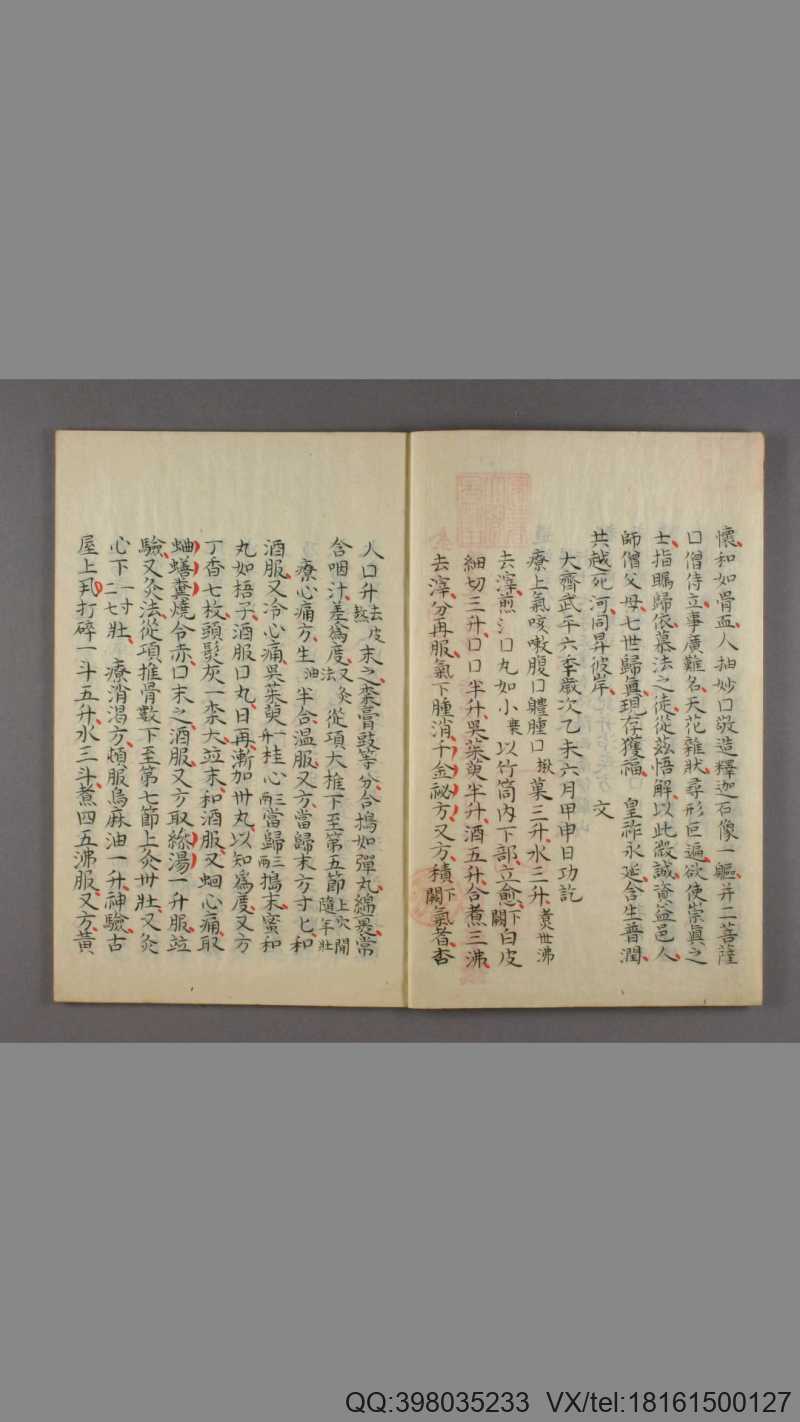 懷和如骨血人抽妙口敬造釋迦石像一軀并二菩薩
口僧侍立事廣難名天花雜狀尋形巨遍欲使崇眞之
士指矚歸依慕法之徒從茲悟解以此殿誠資益邑人
師僧父母七世歸眞現存獲福 皇祚永延含生普潤
共越死河同昇彼岸 文
大齊武平六季歲次乙未六月甲申日功訖
療上氣咳嗽腹口體腫口楸菓三升水三升煑卅沸
去滓煎氵口丸如小棗以竹筒內下部立愈下闕白皮
細切三升口口半升吳茱萸半升酒五升合煮三沸
去滓分再服氣下腫消千金秘方又方積下闕氣者杏
人口升去皮熬末之棗膏豉等分合搗如彈丸綿裹常
含咽汁差爲度又灸法從項大椎下至第五節上穴閒隨年壯
療心痛方生油半合温服又方當歸末方寸匕和
酒服又冷心痛吳茱萸一升桂心三兩當歸三兩搗末蜜和
丸如梧子酒服口丸日再漸加卅丸以知爲度又方
丁香七枚頭髮灰一棗大竝末和酒服又蛔心痛取
蛐蟮糞燒令赤口末之酒服又方取綠湯一升服竝
驗又灸法從項椎骨數下至第七節上灸卅壯又灸
心下一寸二七壯 療消渴方頓服烏麻油一升神驗古
屋上瓦打碎一斗五升水三斗煮四五沸服又方黃
QQ:398035233 VX/tel:18161500127